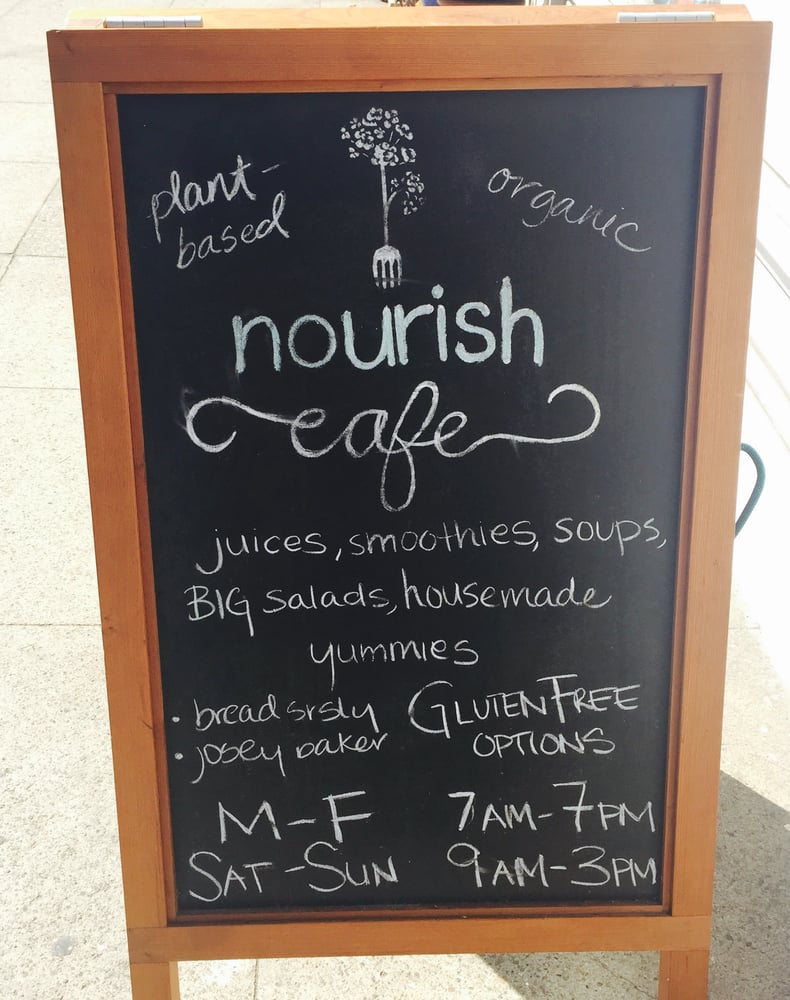 plant-
based
organic
nourish
cafe
juices, smoothies, soups,
BIG salads, housemade
yummies
• bread srsly
• josey baker
GLUTEN FREE
OPTIONS
M-F 7AM-7PM
SAT-SUN 9AM-3PM